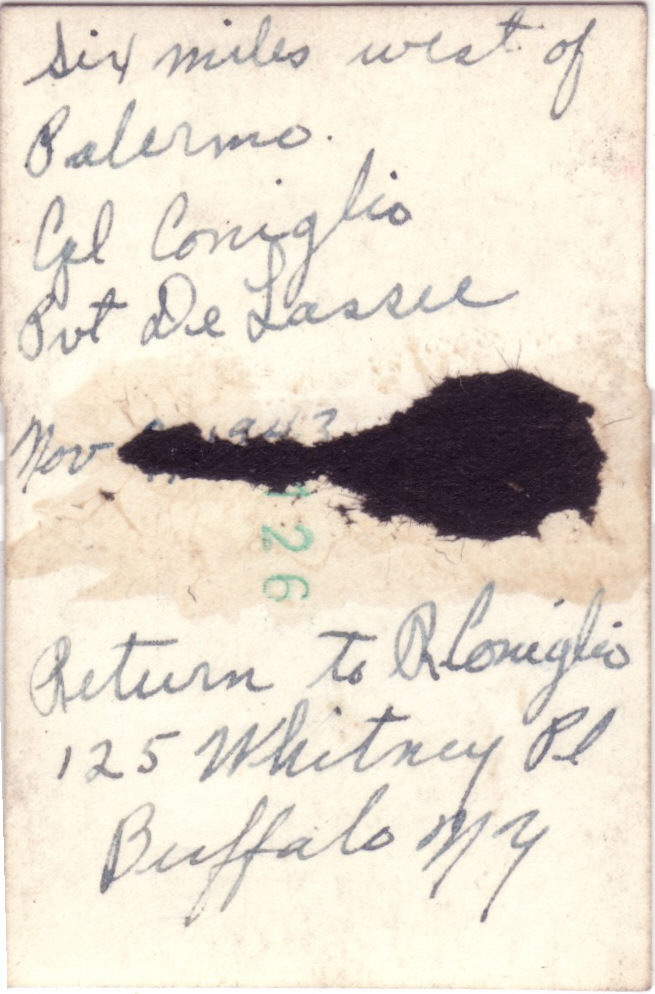 Six miles west of
Palermo.
Cpl Coniglio
Pvt De Lassee
Nov 1943
126
Return to R Coniglio
125 Whitney Pl
Buffalo NY